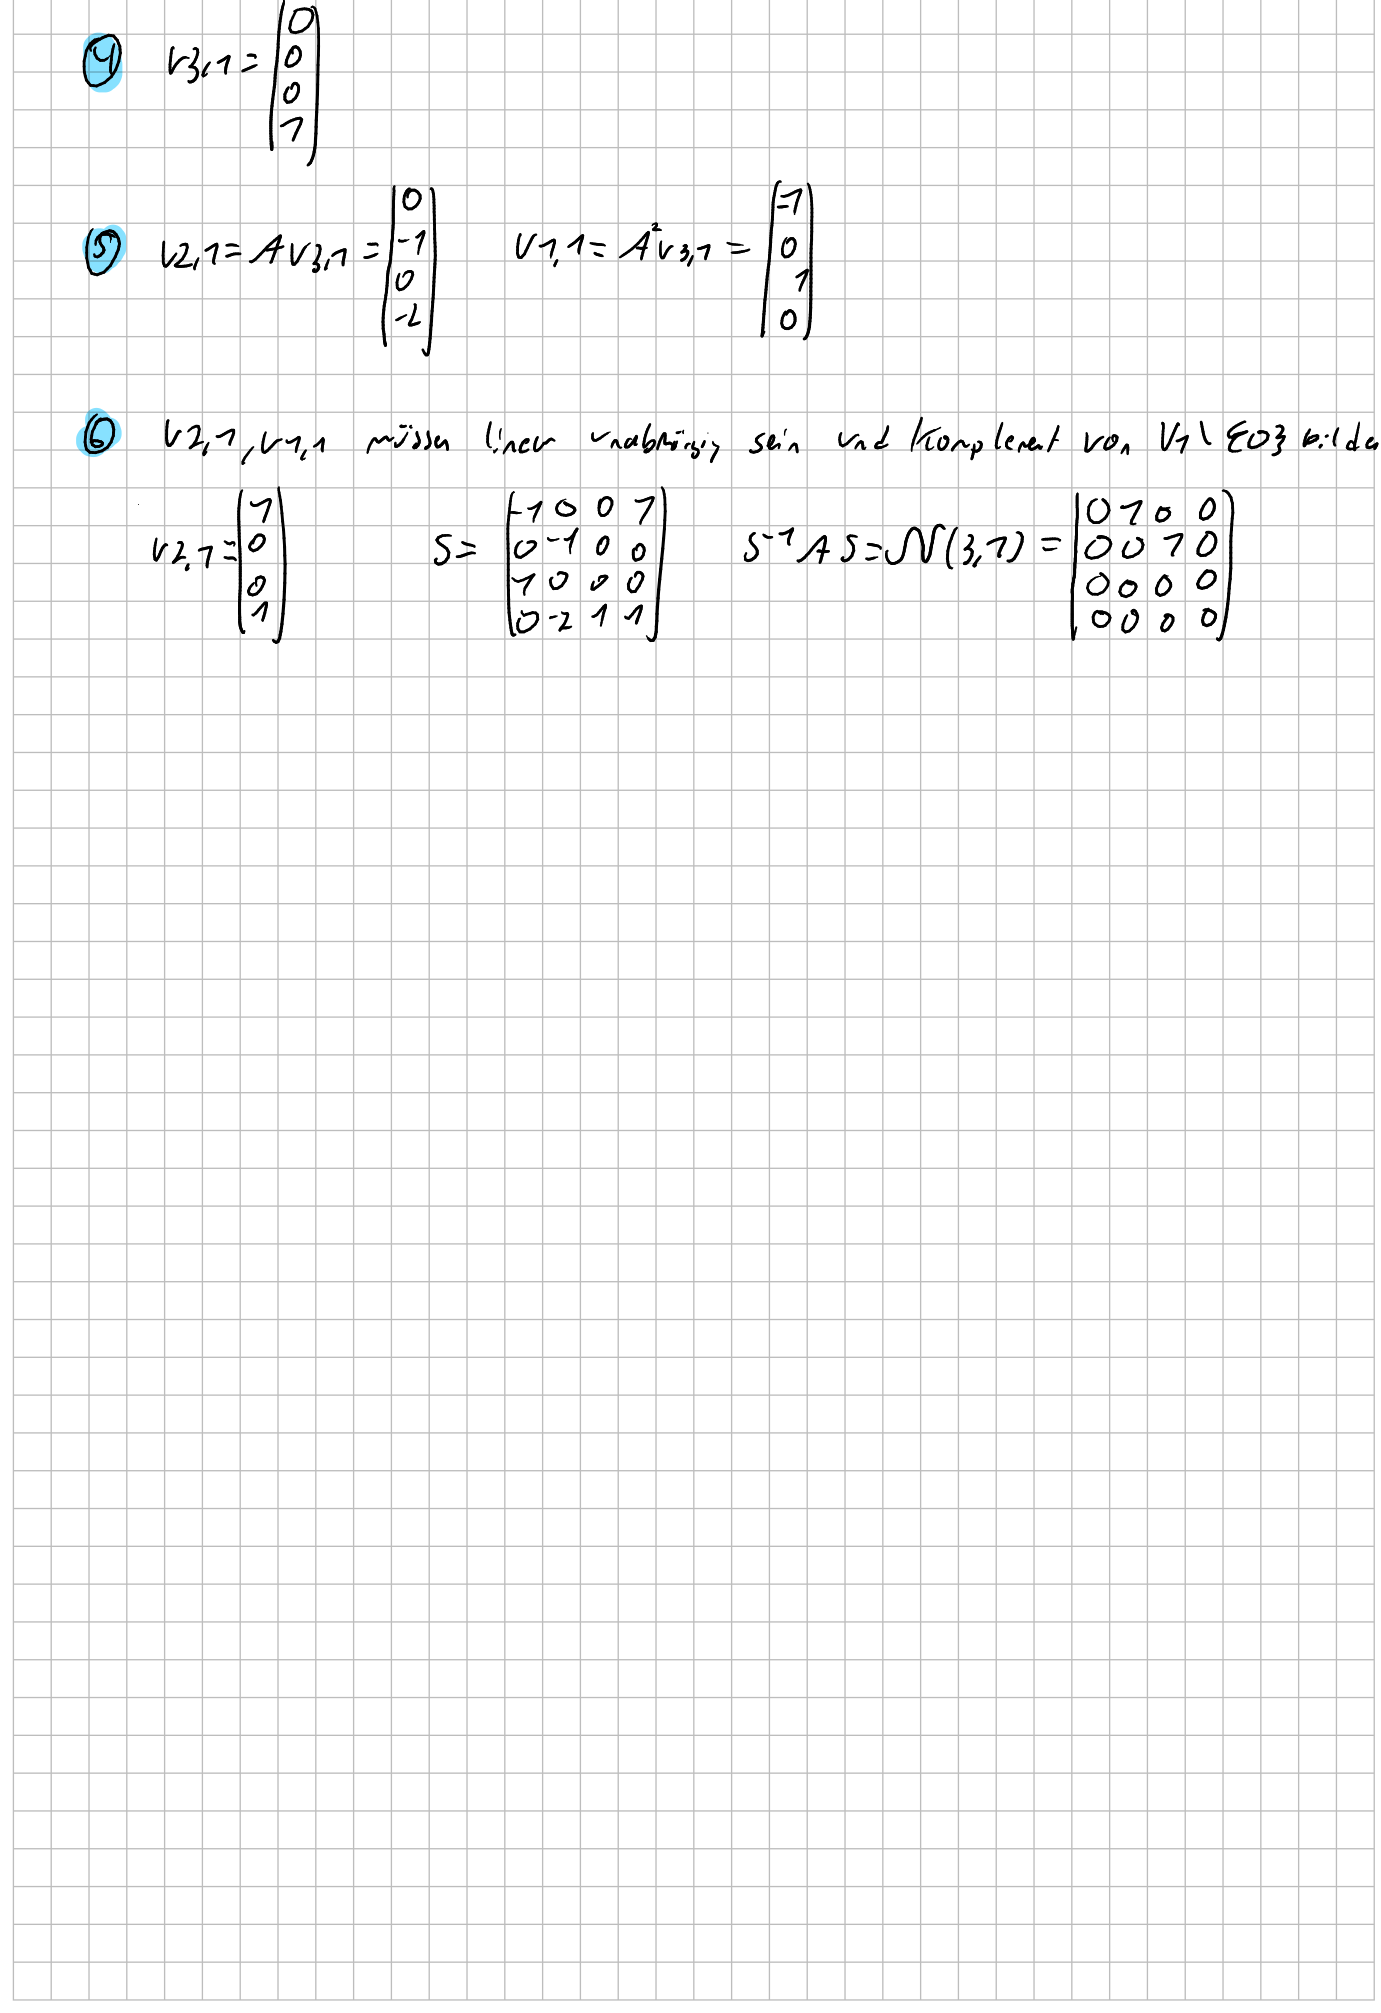 ④ v3,1 = (0 0 0 1)
⑤ v2,1 = A v3,1 = (0 -1 0 -2) v1,1 = A² v3,1 = (-1 0 1 0)
⑥ v2,1, v1,1 müssen linear unabhängig sein und Komplement von V1 \ {0} bilden
v2,1 = (1 0 0 1) S = (-1 0 0 1 / 0 -1 0 0 / 1 0 0 0 / 0 -2 1 1) S⁻¹ A S = N(3,1) = (0 1 0 0 / 0 0 1 0 / 0 0 0 0 / 0 0 0 0)